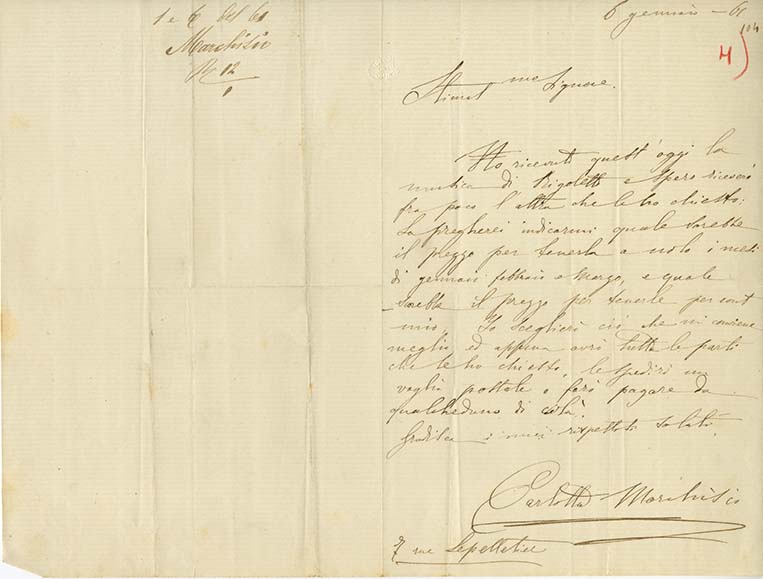 1 e 6 del 61
Marchisio
R 12
6 gennaio - 61
Stimat.me Signore.
Ho ricevuti quest'oggi la
musica di Rigoletto e spero riceverò
fra poco l'altra che le ho chiesto.
La pregherei indicarmi quale sarebbe
il prezzo per tenerla a nolo i mesi
di gennaio febbraio e Marzo, e quale
sarebbe il prezzo per tenerle per cont
mio. Io sceglierò ciò che mi conviene
meglio ed appena avrò tutte le parti
che le ho chiesto, le spedirò un
vaglia postale o farò pagare da
qualcheduno di costà.
Gradisca i miei rispettosi saluti.
Carlotta Marchisio
7 rue Lepelletier